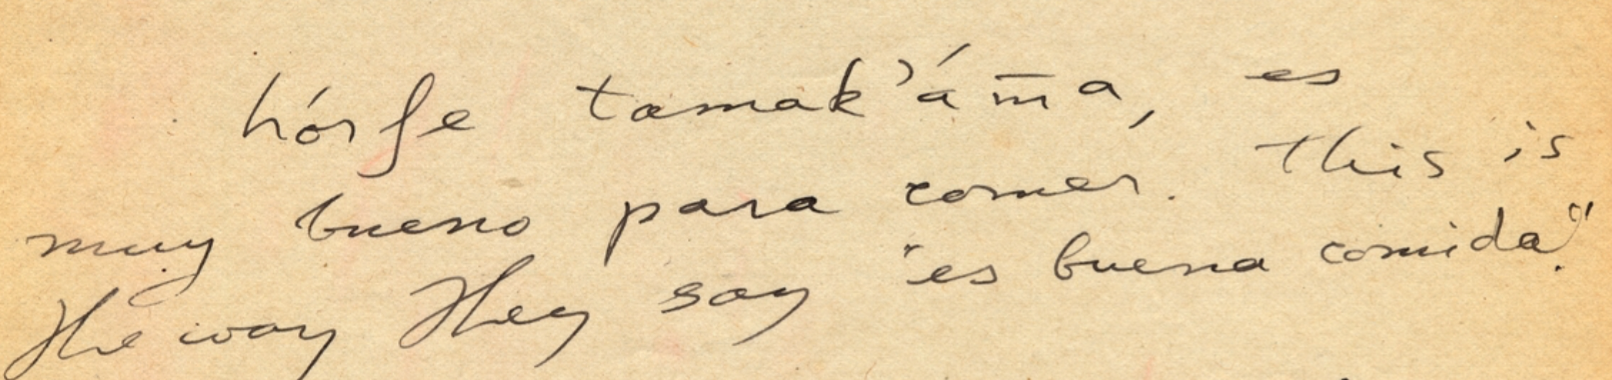 hórʃe tamak'ám̄a, es
muy bueno para comer. This is
the way they say "es buena comida".